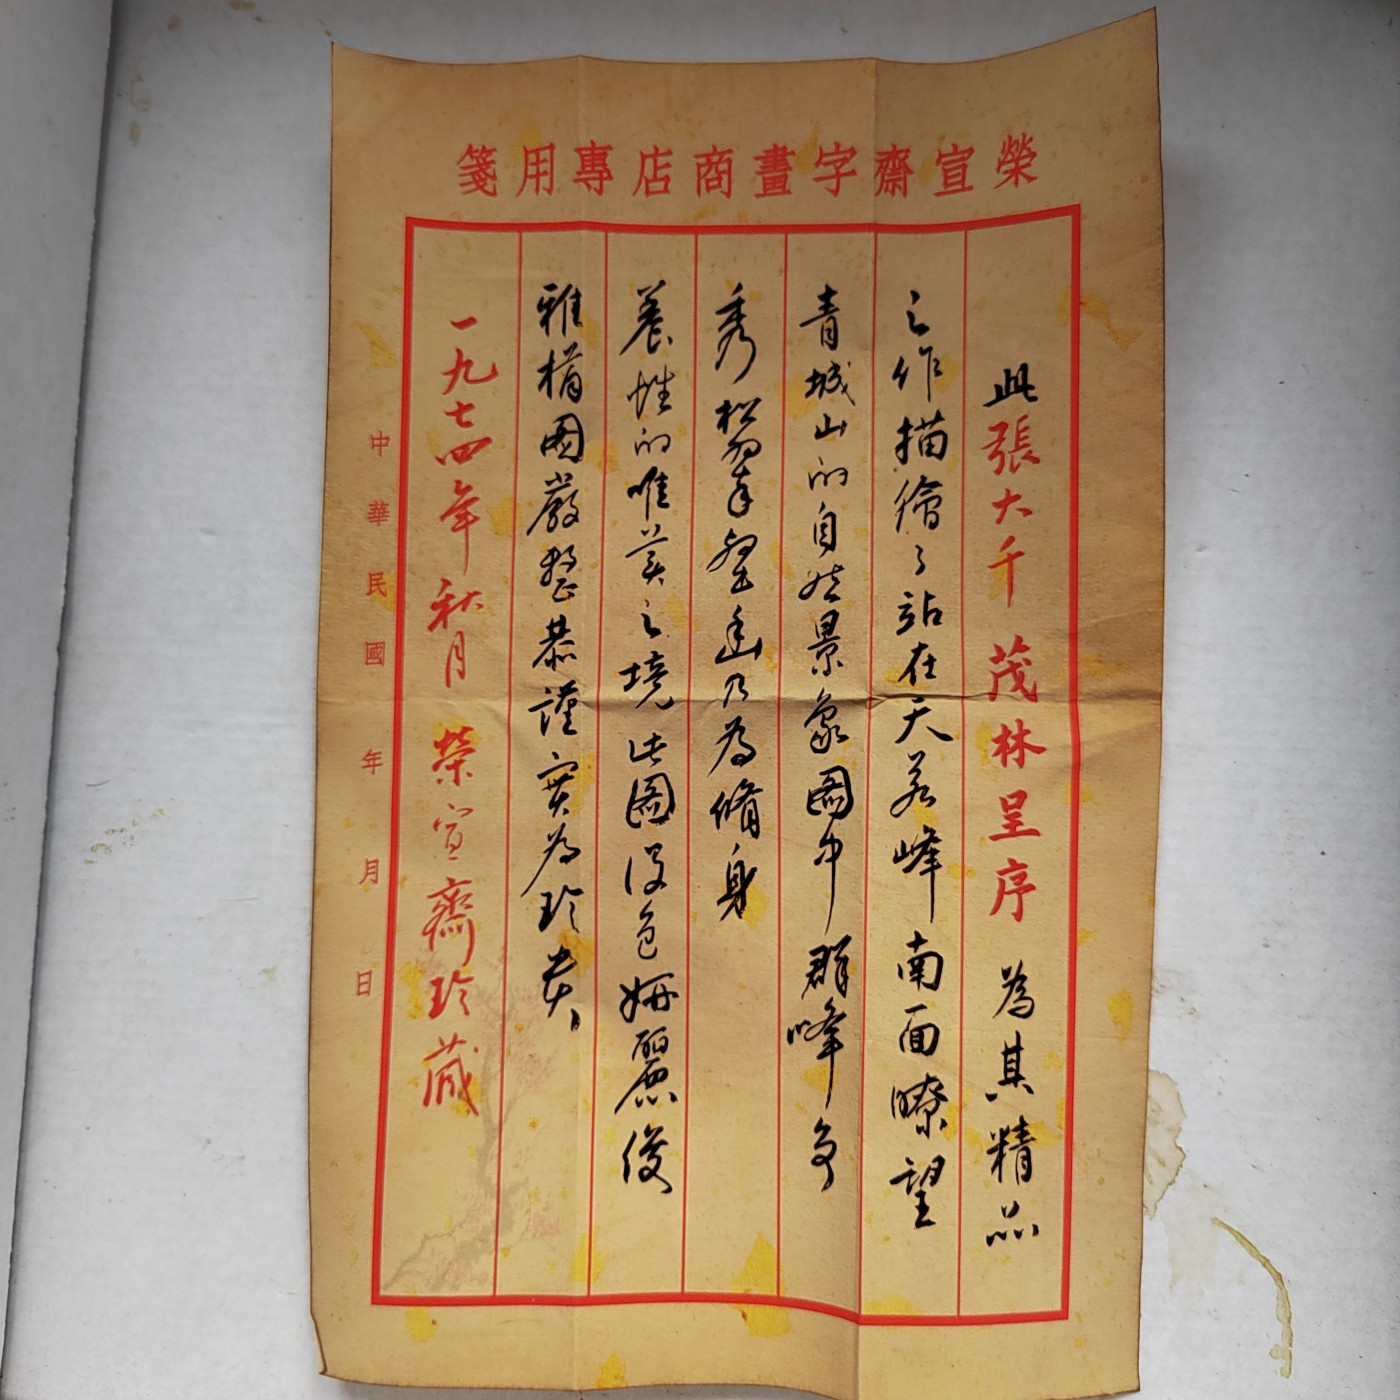 榮宣齋字畫商店專用箋
此張大千 茂林呈序 為其精品
之作描繪了站在天若峰南面瞭望
青城山的自然景象图中群峰争
秀松翠壑幽乃為脩身
養性的唯美之境此图设色妍麗俊
雅構图嚴整恭謹实為珍贵
一九七四年秋月 榮宣齋珍藏
中華民國 年 月 日